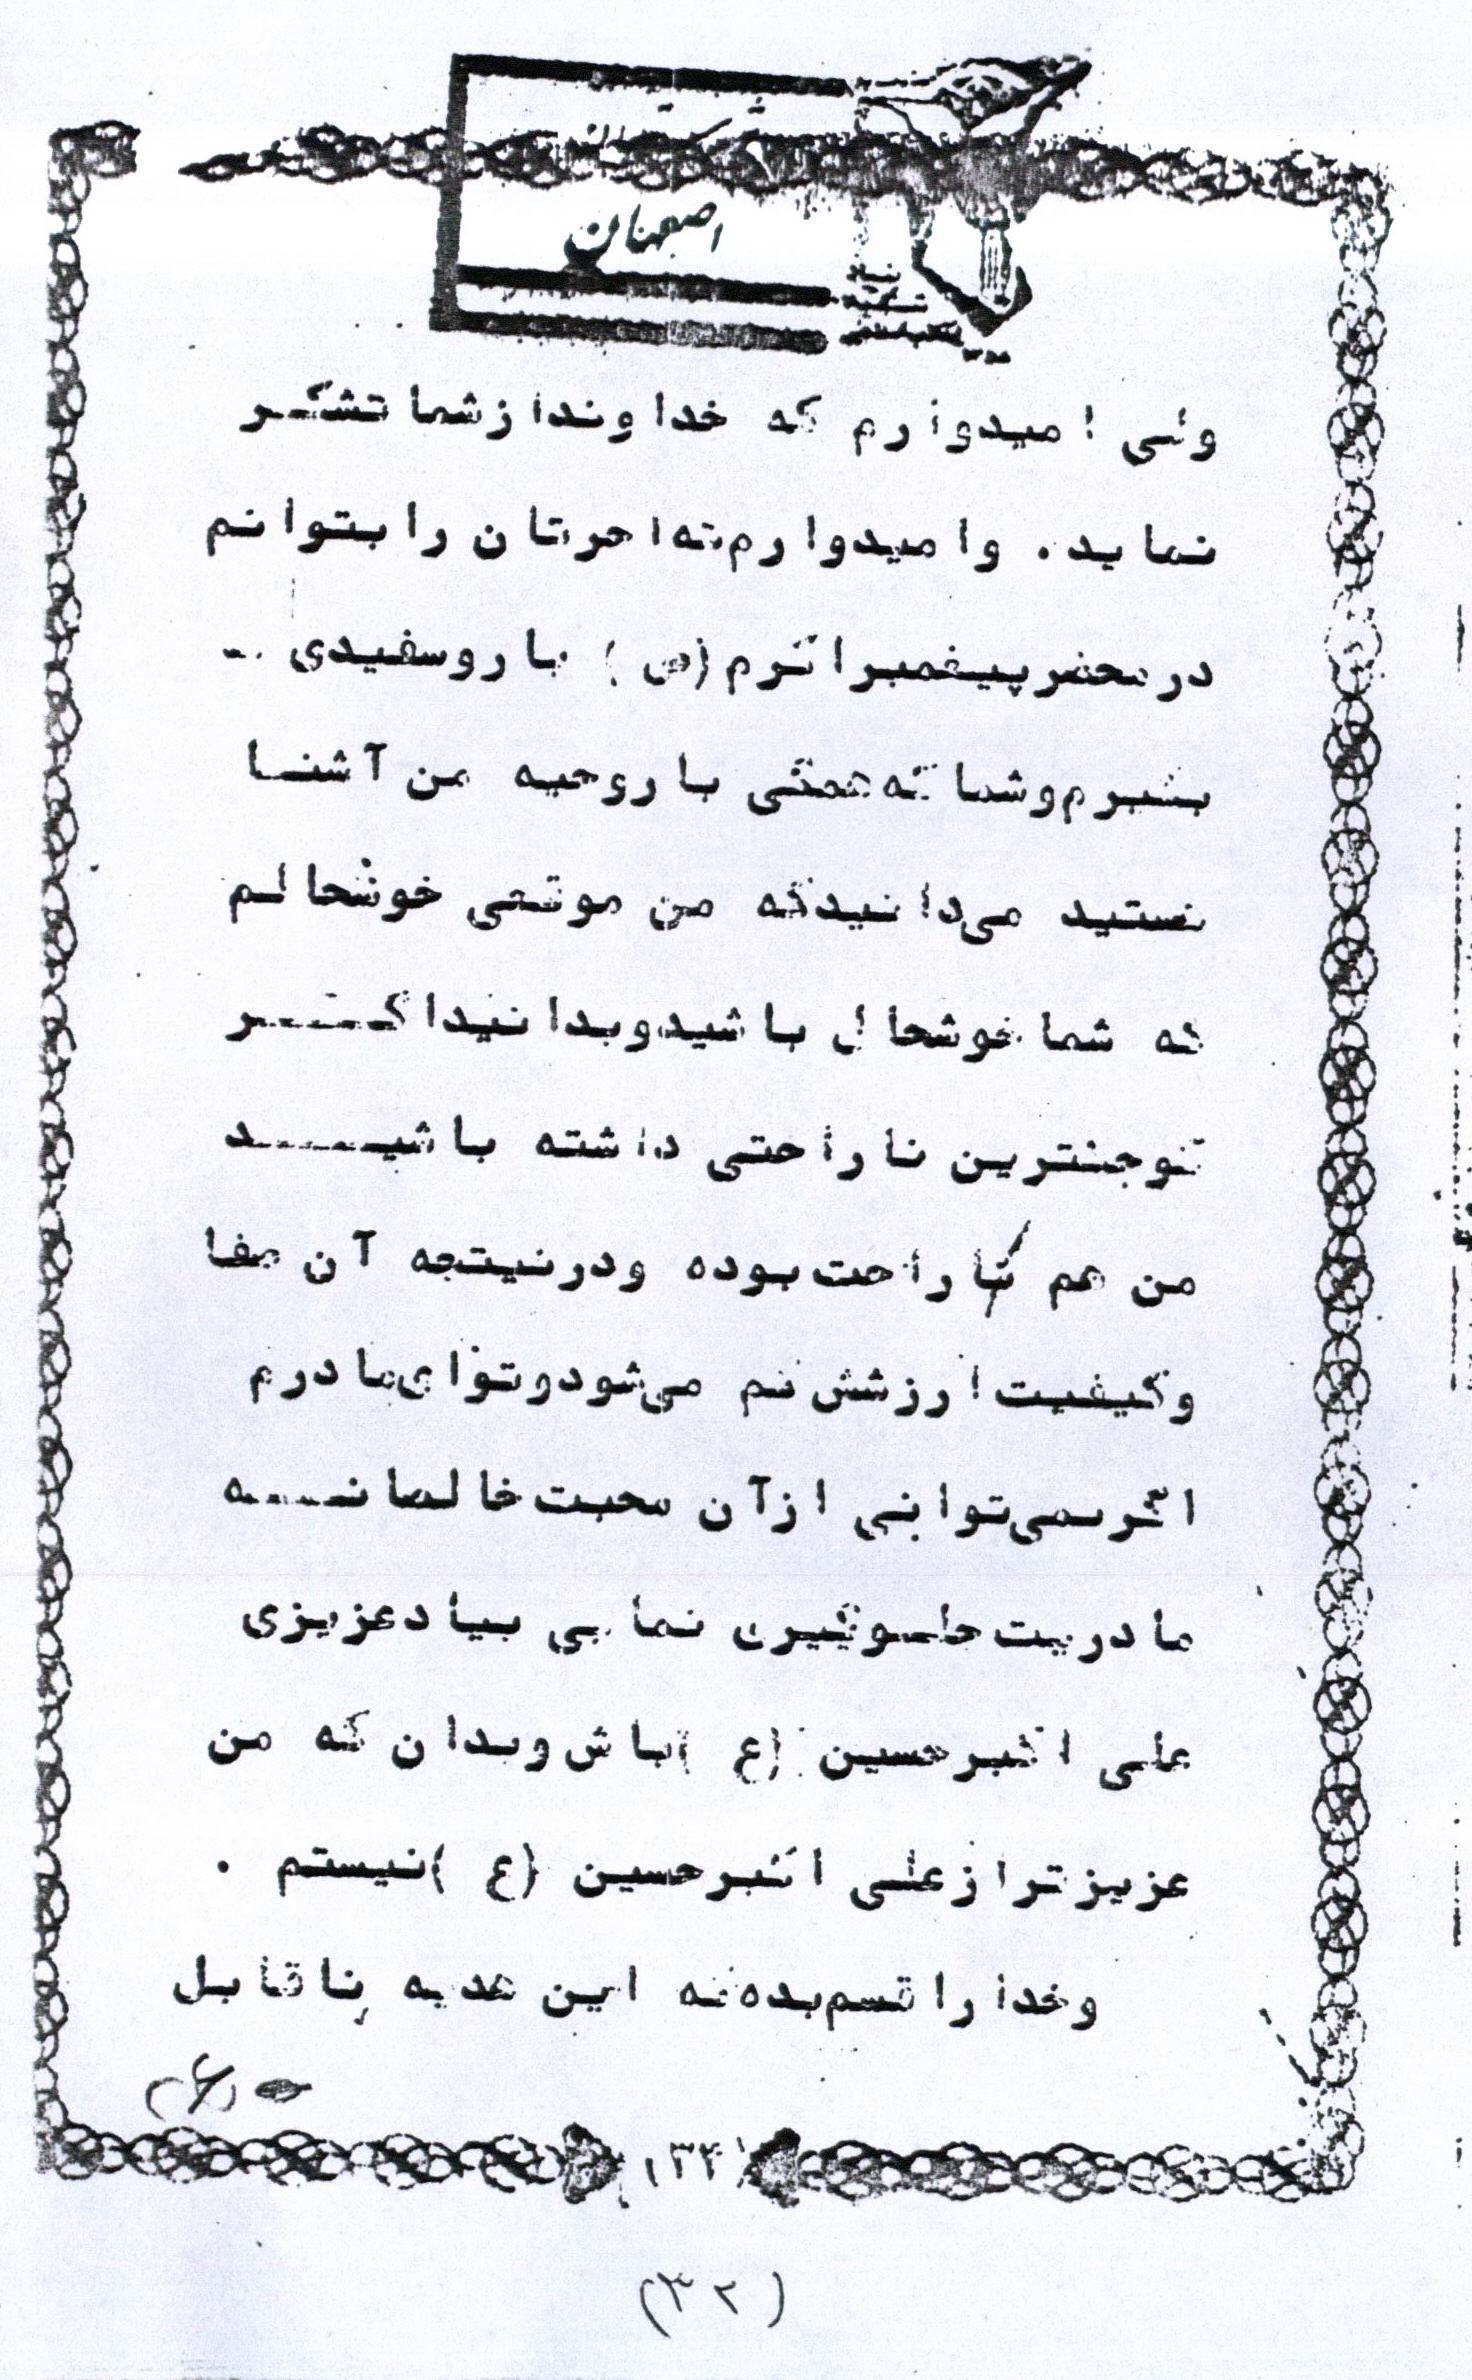 اصفهان
ولی امیدوارم که خداوند از شما تشکر
نماید. و امیدوارم که اجرتان را بتوانم
در محضر پیغمبر اکرم (ص) با روسفیدی
ببرم و شما که همگی با روحیه من آشنا
هستید می‌دانید که من موقعی خوشحالم
که شما خوشحال باشید و بدانید اگر
کوچکترین ناراحتی داشته باشید
من هم ناراحت بوده و در نیتجه آن صفا
و کیفیت ارزشش کم می‌شود و تو ای مادرم
اگر نمی‌توانی از آن محبت خالصانه
مادریت جلوگیری نمایی بیاد عزیزی
علی اکبر حسین (ع) باش و بدان که من
عزیزتر از علی اکبر حسین (ع) نیستم .
و خدا را قسم بده که این هدیه ناقابل
(۳۲)